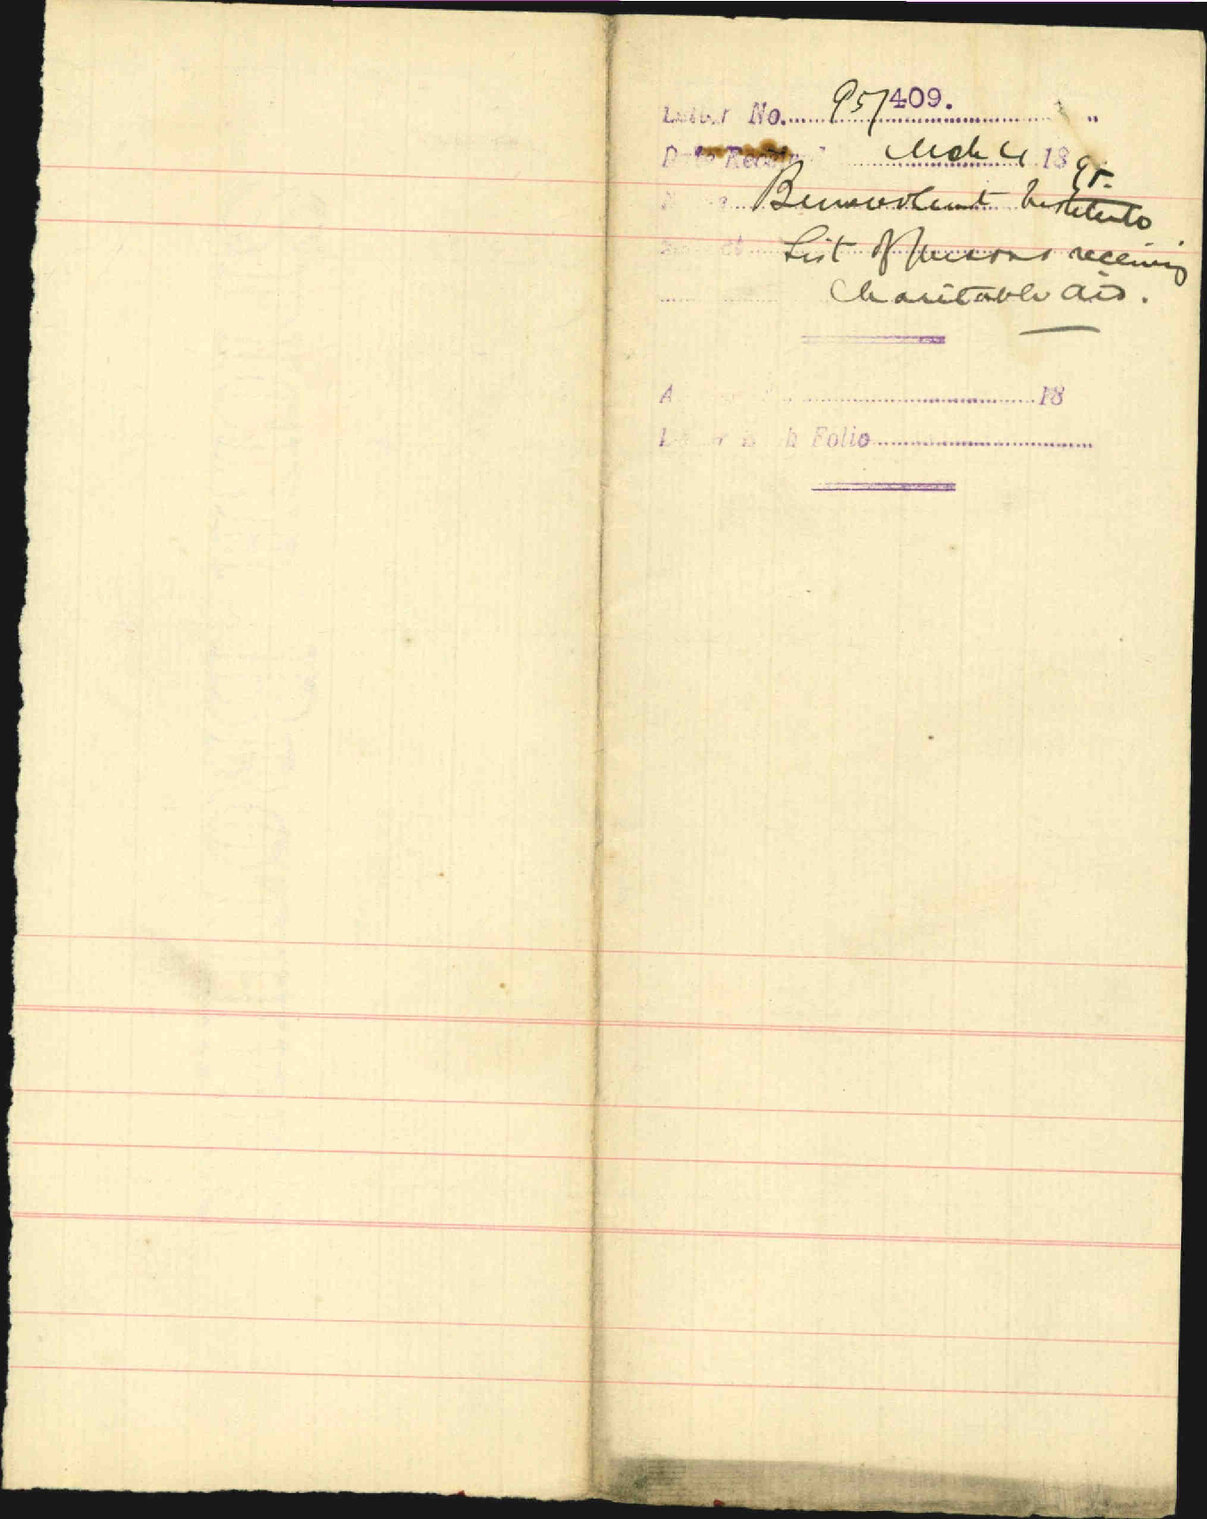 Letter No. 95/409.
Date Received March 4 1895.
Benevolent Institute
List of persons receiving
Charitable Aid.
18
Folio